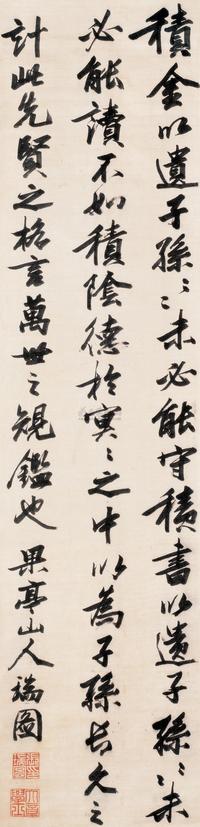 積金以遺子孫〻未必能守積書以遺子孫〻未
必能讀不如積陰德於冥〻之中以為子孫長久之
計此先賢之格言萬世之規鑑也 果亭山人瑞圖